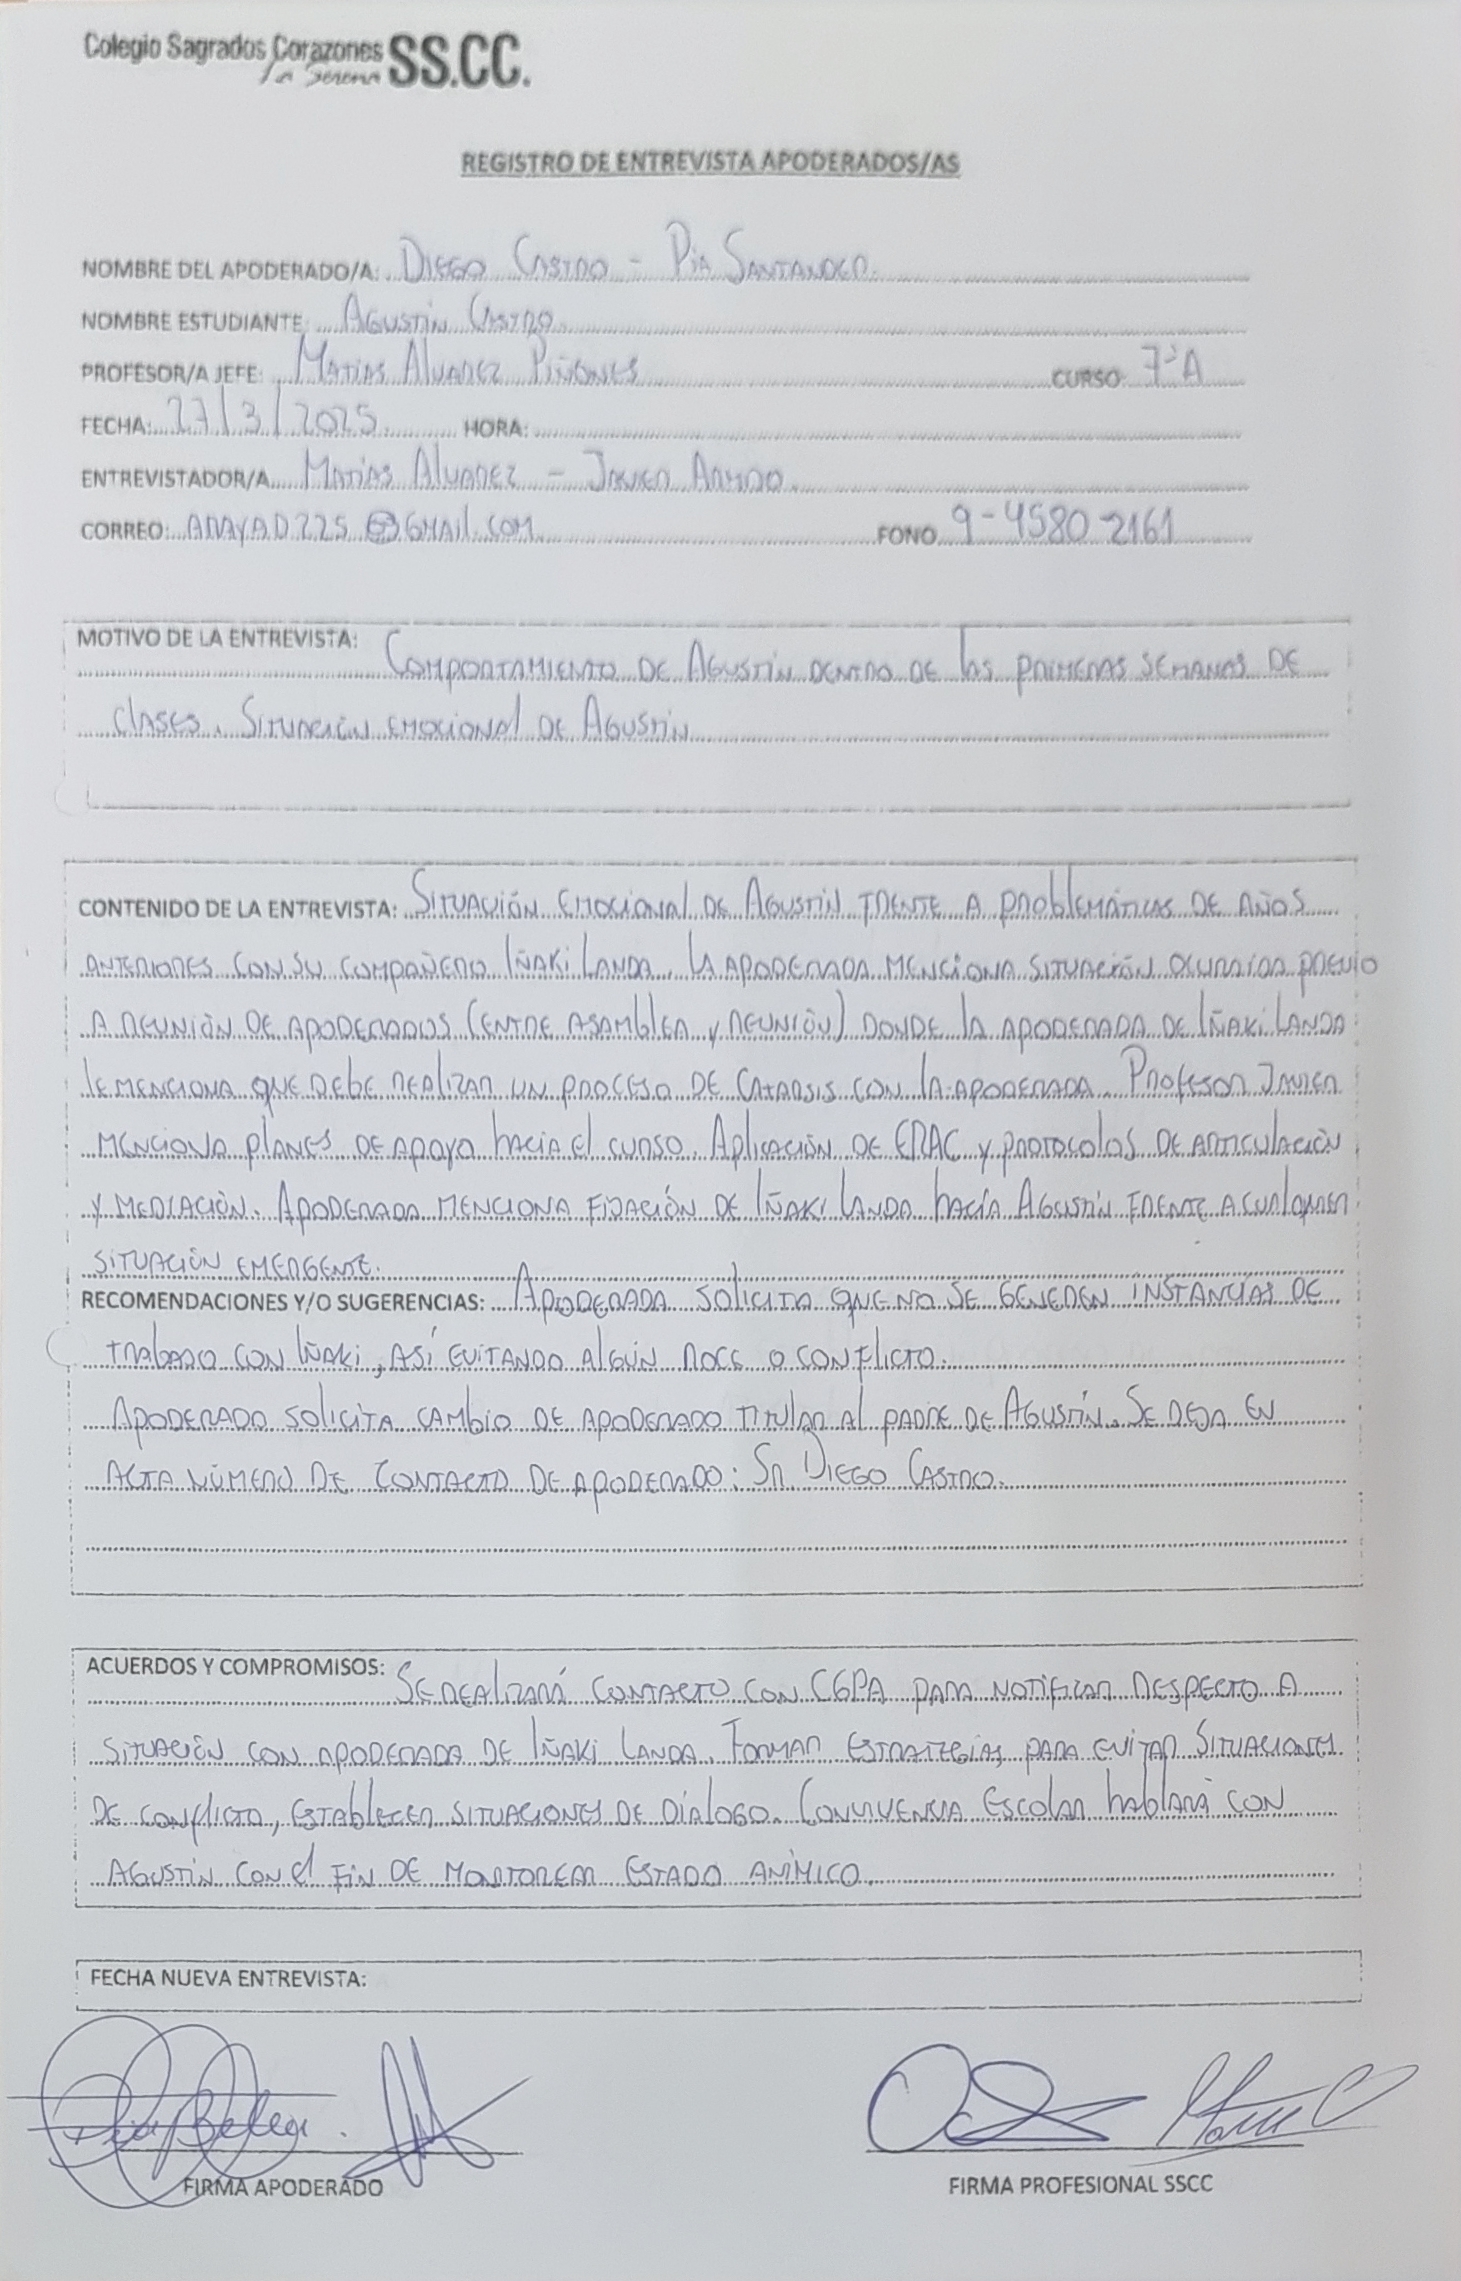 Colegio Sagrados Corazones SS.CC.
La Serena
REGISTRO DE ENTREVISTA APODERADOS/AS
NOMBRE DEL APODERADO/A: DIEGO CASTRO - PIA SANTANDER.
NOMBRE ESTUDIANTE: AGUSTÍN CASTRO.
PROFESOR/A JEFE: MATÍAS ALVAREZ PIÑONES CURSO 7°A
FECHA: 27/3/2025 HORA:
ENTREVISTADOR/A MATÍAS ALVAREZ - JAVIER
CORREO: ARAYAD225@GMAIL.COM FONO 9-4580 2161
MOTIVO DE LA ENTREVISTA: COMPORTAMIENTO DE AGUSTÍN DENTRO DE LAS PRIMERAS SEMANAS DE
CLASES. SITUACIÓN EMOCIONAL DE AGUSTÍN
CONTENIDO DE LA ENTREVISTA: SITUACIÓN EMOCIONAL DE AGUSTÍN FRENTE A PROBLEMÁTICAS DE AÑOS
ANTERIORES CON SU COMPAÑERO IÑAKI LANDA. LA APODERADA MENCIONA SITUACIÓN OCURRIDA PREVIO
A REUNIÓN DE APODERADOS (ENTRE ASAMBLEA Y REUNIÓN) DONDE LA APODERADA DE IÑAKI LANDA
LE MENCIONA QUE DEBE REALIZAR UN PROCESO DE CATARSIS CON LA APODERADA. PROFESOR JAVIER
MENCIONA PLANES DE APOYO HACIA EL CURSO. APLICACIÓN DE ERAC Y PROTOCOLOS DE ARTICULACIÓN
Y MEDIACIÓN. APODERADA MENCIONA FIJACIÓN DE IÑAKI LANDA HACÍA AGUSTÍN FRENTE A CUALQUIER
SITUACIÓN EMERGENTE.
RECOMENDACIONES Y/O SUGERENCIAS: APODERADA SOLICITA QUE NO SE GENEREN INSTANCIAS DE
TRABAJO CON IÑAKI, ASÍ EVITANDO ALGÚN ROCE O CONFLICTO.
APODERADO SOLICITA CAMBIO DE APODERADO TITULAR AL PADRE DE AGUSTÍN. SE DEJA EN
ACTA NÚMERO DE CONTACTO DE APODERADO: SR. DIEGO CASTRO.
ACUERDOS Y COMPROMISOS: SE REALIZARÁ CONTACTO CON CGPA PARA NOTIFICAR RESPECTO A
SITUACIÓN CON APODERADA DE IÑAKI LANDA. FORMAR ESTRATEGIAS PARA EVITAR SITUACIONES
DE CONFLICTO, ESTABLECER SITUACIONES DE DÍALOGO. CONVIVENCIA ESCOLAR HABLARÁ CON
AGUSTÍN CON EL FIN DE MONITOREAR ESTADO ANÍMICO.
FECHA NUEVA ENTREVISTA:
FIRMA APODERADO FIRMA PROFESIONAL SSCC